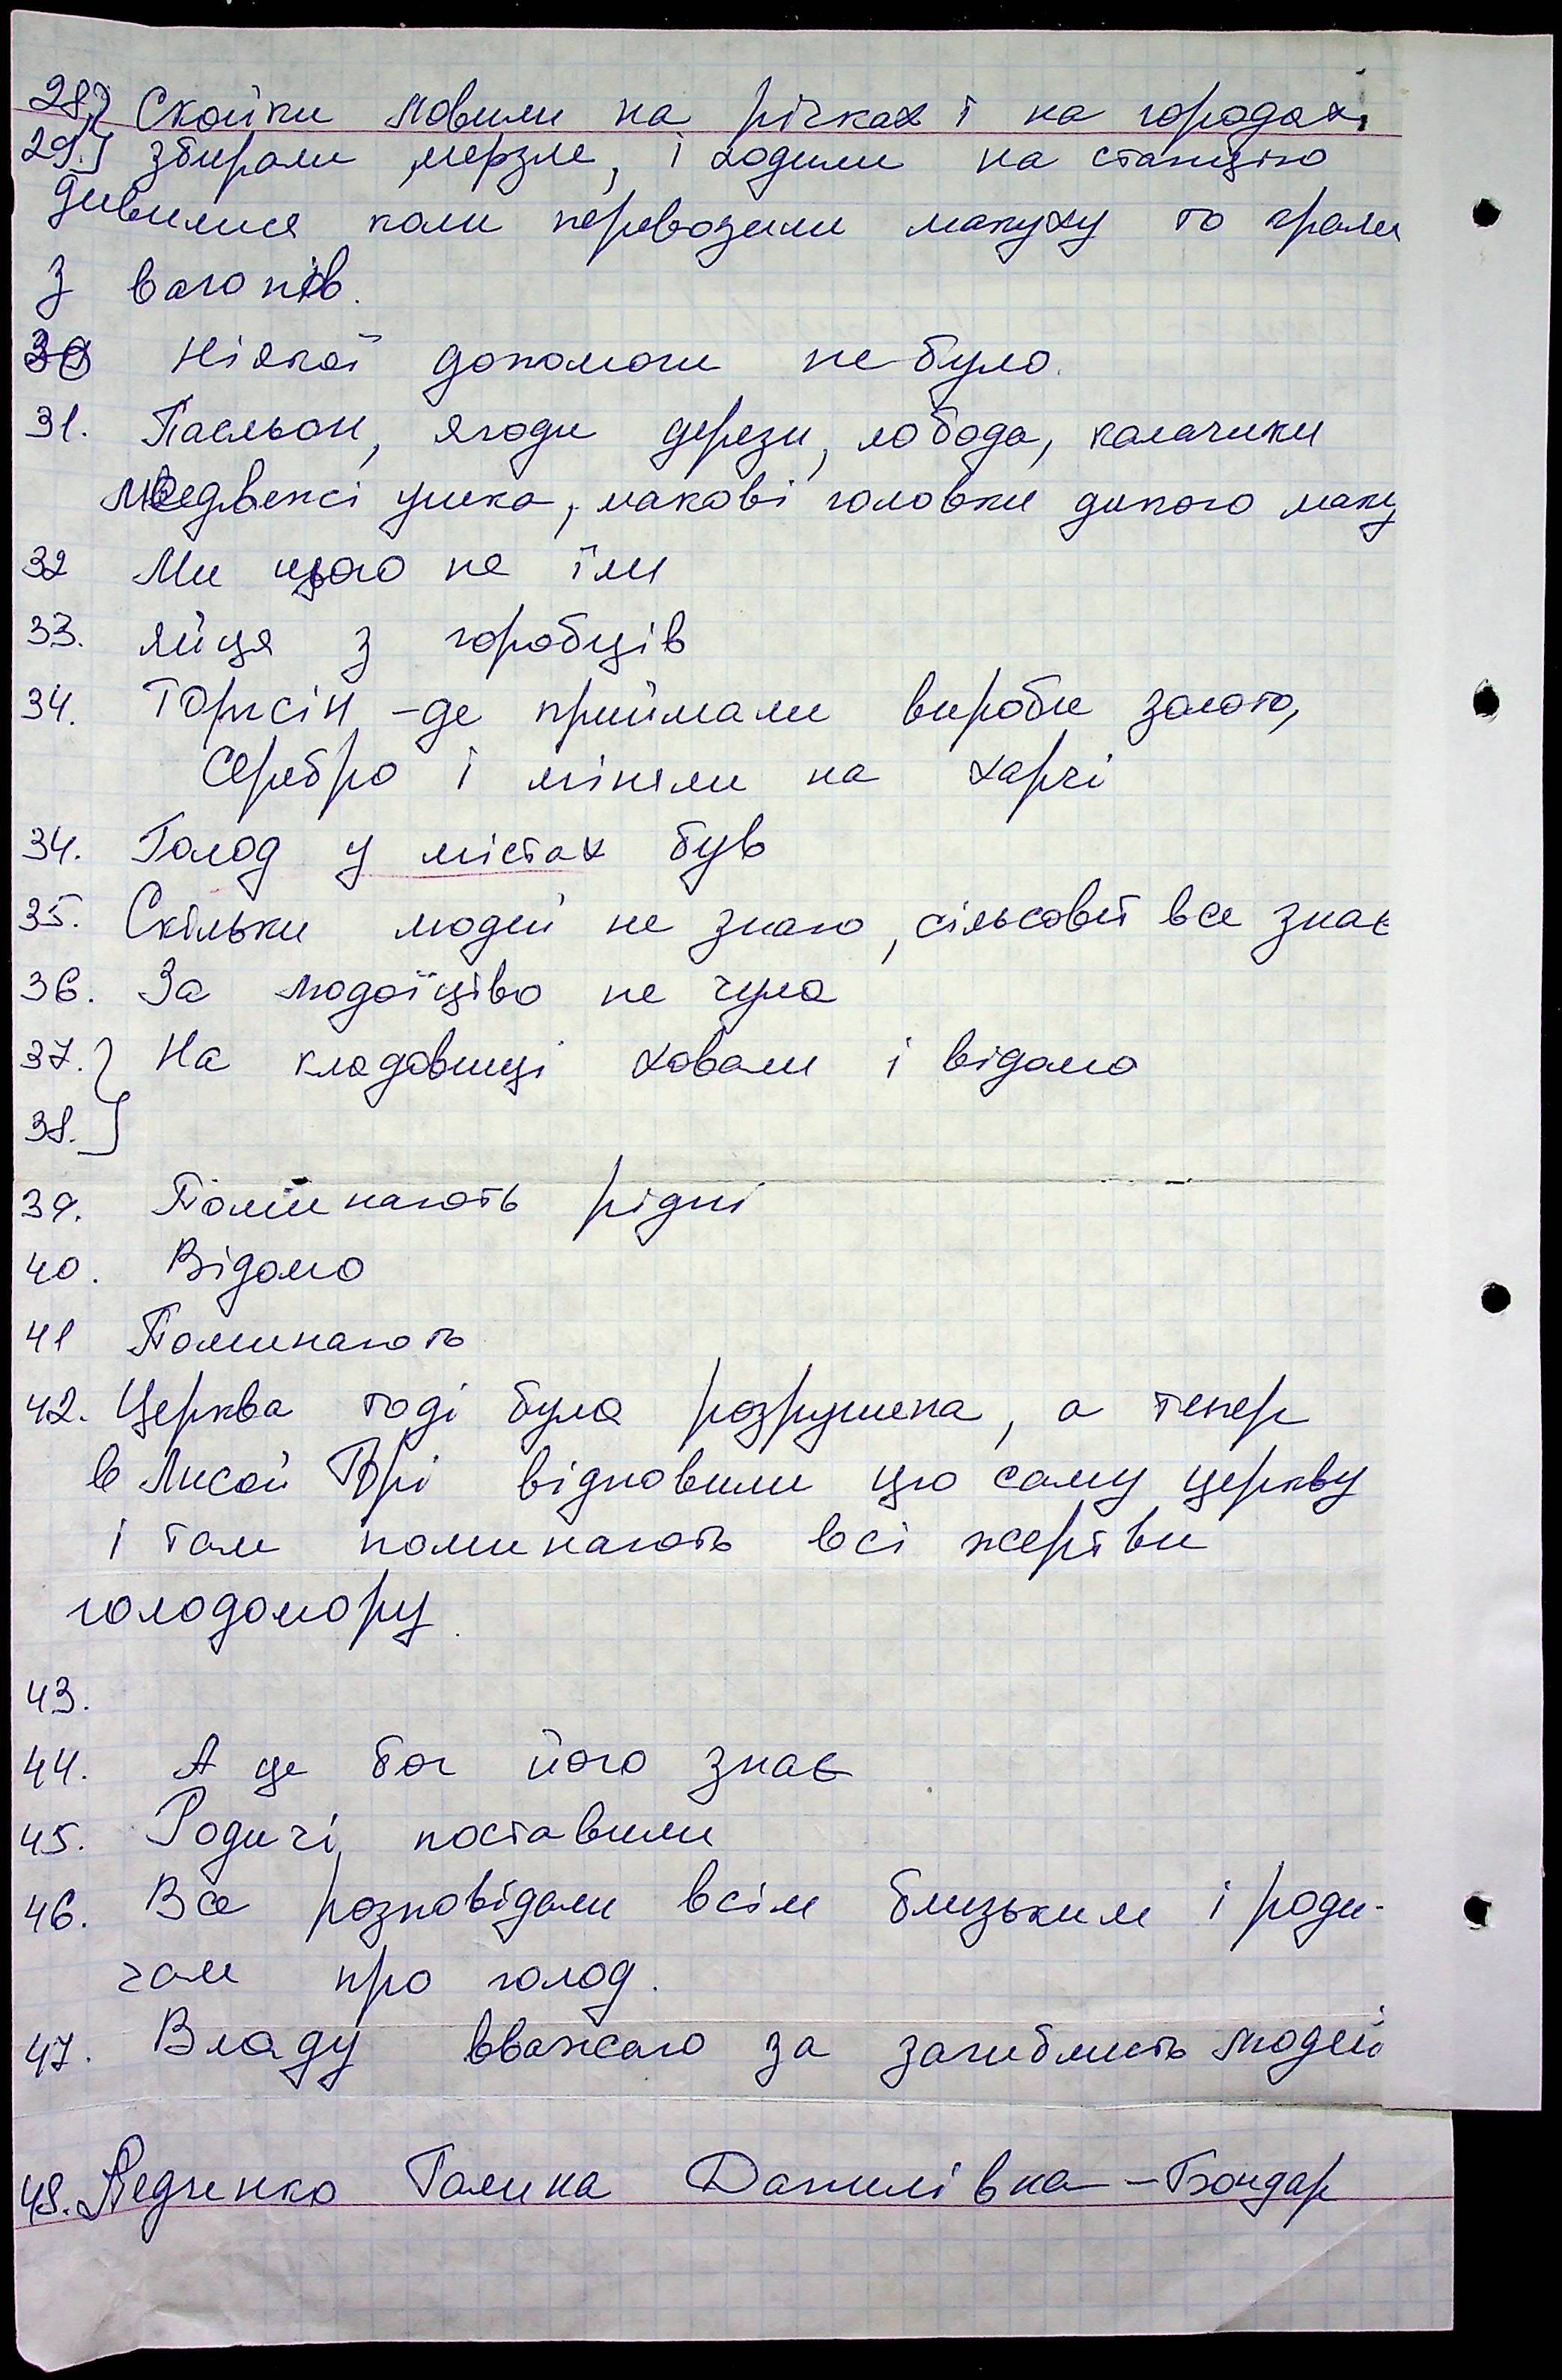 28.} Скойки ловили на річках і на городах,
29.} збирали мерзле, і ходили на станцію
дивилися коли перевозили макуху то крали
з вагонів.
30 Ніякої допомоги не було.
31. Пасльон, ягоди дерези, лобода, калачики
медвежі ушка, макові головки дикого маку
32 Ми цього не їли
33. яйця з горобців
34. Торгсін - де приймали вироби золото,
серебро і міняли на харчі
34. Голод у містах був
35. Скільки людей не знаю, сільсовет все знає
36. За людоїцтво не чула
37.} На кладовищі ховали і відомо
38.}
39. Поминають рідні
40. Відомо
41 Поминають
42. Церква тоді була розрушена, а тепер
в Лисой Горі відновили цю саму церкву
і там поминають всі жертви
голодомору.
43.
44. А це бог його знає
45. Родичі поставили
46. Все розповідали всім близьким і роди-
чам про голод.
47. Владу вважаю за загиблисть людей
48. Галина Данилівна - Бондар